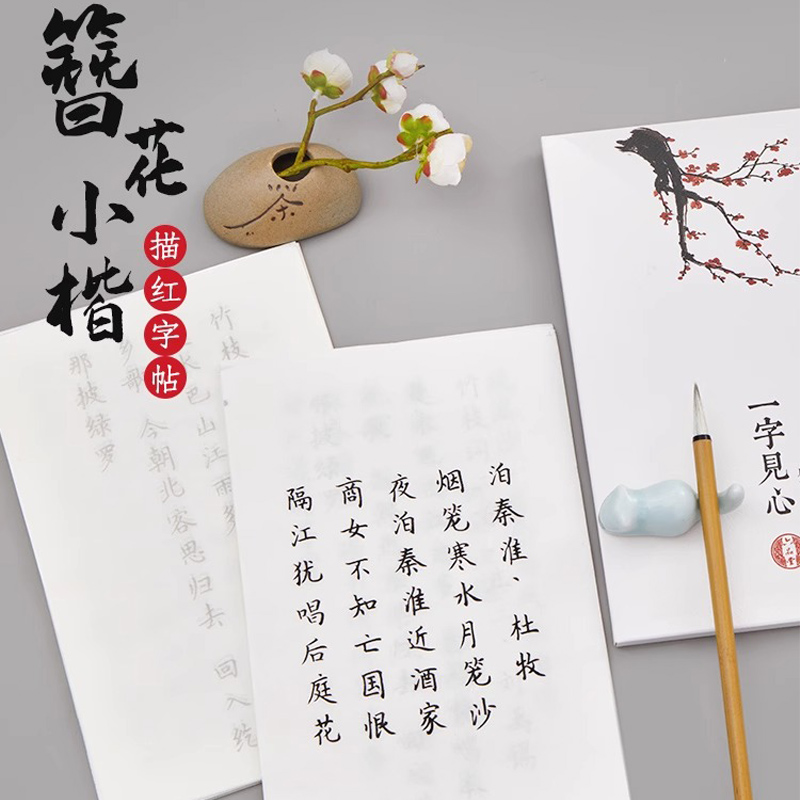 簪花小楷
描红字帖
余
一字見心
六品堂
泊秦淮、杜牧
烟笼寒水月笼沙
夜泊秦淮近酒家
商女不知亡国恨
隔江犹唱后庭花
竹枝
巴山江雨多
乡歌
今朝北客思归去
回入纥
那披绿罗